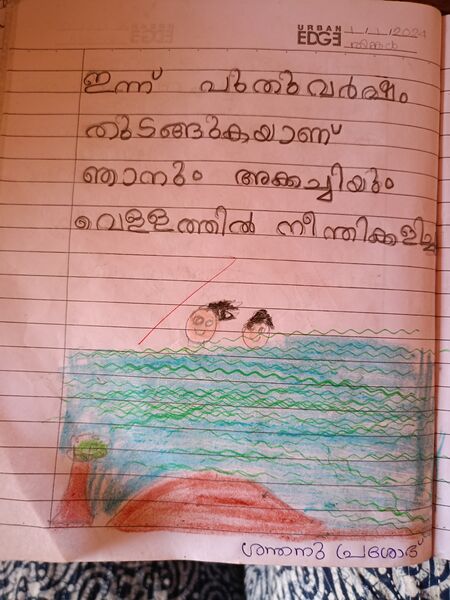 URBAN
EDGE
1/1/2024
തിങ്കൾ
ഇന്ന് പുതുവർഷം
തുടങ്ങുകയാണ്
ഞാനും അക്കച്ചിയും
വെള്ളത്തിൽ നീന്തിക്കളിച്ചു
ശന്തനു പ്രശോഭ്